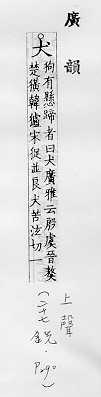 廣韻
犬
狗有懸蹄者曰犬廣雅云殷虞晉獒
楚獚韓獹宋㹱並良犬苦泫切一
上聲
(二十七銑・P.290)